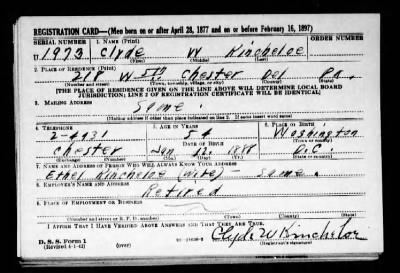 REGISTRATION CARD—(Men born on or after April 28, 1877 and on or before February 16, 1897)
SERIAL NUMBER 1. NAME (Print) ORDER NUMBER
U 1973 Clyde W Kincheloe
(First) (Middle) (Last)
2. PLACE OF RESIDENCE (Print)
218 W 5th Chester Del Pa.
(Number and street) (Town, township, village, or city) (County) (State)
[THE PLACE OF RESIDENCE GIVEN ON THE LINE ABOVE WILL DETERMINE LOCAL BOARD
JURISDICTION; LINE 2 OF REGISTRATION CERTIFICATE WILL BE IDENTICAL]
3. MAILING ADDRESS
Same.
[Mailing address if other than place indicated on line 2. If same insert word same]
4. TELEPHONE 5. AGE IN YEARS 6. PLACE OF BIRTH
2-4931 54 Washington
DATE OF BIRTH (Town or county)
Chester Jan 12. 1888 D.C.
(Exchange) (Number) (Mo.) (Day) (Yr.) (State or country)
7. NAME AND ADDRESS OF PERSON WHO WILL ALWAYS KNOW YOUR ADDRESS
Ethel Kincheloe (wife) - Same.
8. EMPLOYER'S NAME AND ADDRESS
Retired
9. PLACE OF EMPLOYMENT OR BUSINESS
(Number and street or R. F. D. number) (Town) (County) (State)
I AFFIRM THAT I HAVE VERIFIED ABOVE ANSWERS AND THAT THEY ARE TRUE.
D. S. S. Form 1
(Revised 4-1-42) (over) Clyde W Kincheloe
(Registrant's signature)